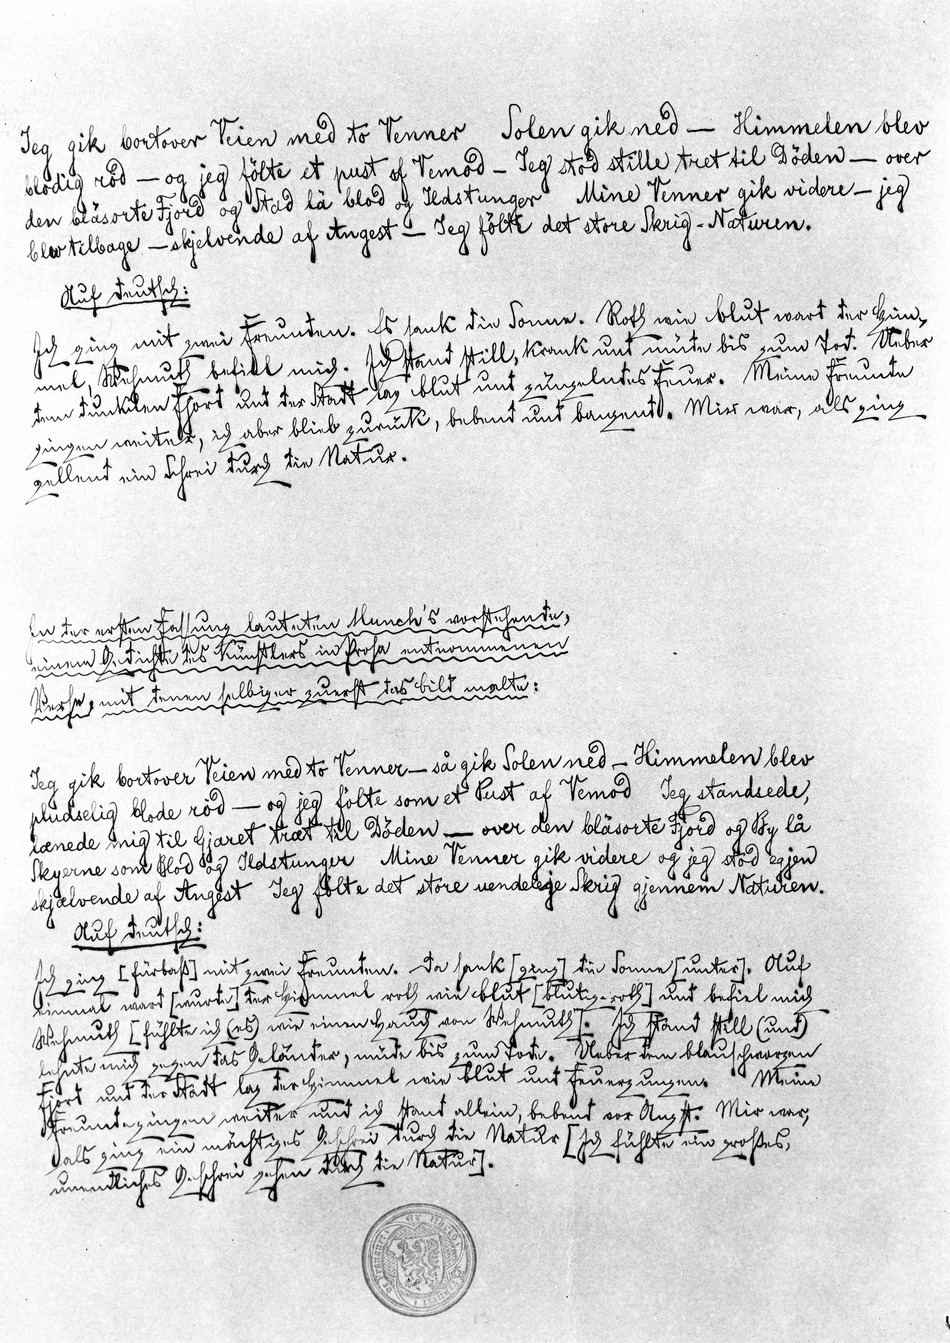 Jeg gik bortover Veien med to Venner Solen gik ned — Himmelen blev
blodig röd — og jeg fölte et pust af Vemod — Jeg stod stille træt til Döden — over
den blåsorte Fjord og Stad lå blod og Ildstunger Mine Venner gik videre — jeg
blev tilbage — skjelvende af Angest — Jeg fölte det store Skrig - Naturen.
Auf deutsch:
Ich ging mit zwei Freunden. Es sank die Sonne. Roth wie blut ward der Him,
mel, Wehmuth befiel mich. Ich stand still, krank und müde bis zum Tod. Ueber
dem dunklen Fjort und der Stadt lag blut und züngelndes Feuer. Meine Freunde
gingen weiter, ich aber blieb zurück, bebend und bangend. Mir war, als ging
gellend ein Schrei durch die Natur.
In der ersten Fassung lauteten Munch's vorstehende,
einem Gedichte des Künstlers in Prosa entnommenen
Verse, mit denen selbiger zuerst das bild malte:
Jeg gik bortover Veien med to Venner — så gik Solen ned — Himmelen blev
pludselig blode röd — og jeg fölte som et Pust af Vemod Jeg standsede,
lænede mig til Gjæret træt til Döden — over den blåsorte Fjord og By lå
Skyerne som Blod og Ildstunger Mine Venner gik videre og jeg stod egjen
skjælvende af Angest Jeg fölte det store uendelige Skrig gjennem Naturen.
Auf deutsch:
Ich ging [fürbaß] mit zwei Freunden. Da sank [ging] die Sonne [unter]. Auf
einmal ward [wurde] der Himmel roth wie blut [blutig-roth] und befiel mich
Wehmuth [fühlte ich (es) wie einen Hauch von Wehmuth]. Ich stand still (und)
lehnte mich gegen das Geländer, müde bis zum Tode. Ueber dem blauschwarzen
Fjort und der Stadt lag der Himmel wie blut und Feuerzungen. Meine
Freunde gingen weiter und ich stand allein, bebend vor Angst. Mir war,
als ging ein mächtiges Geschrei durch die Natur [Ich fühlte ein großes,
unendliches Geschrei gehen durch die Natur].